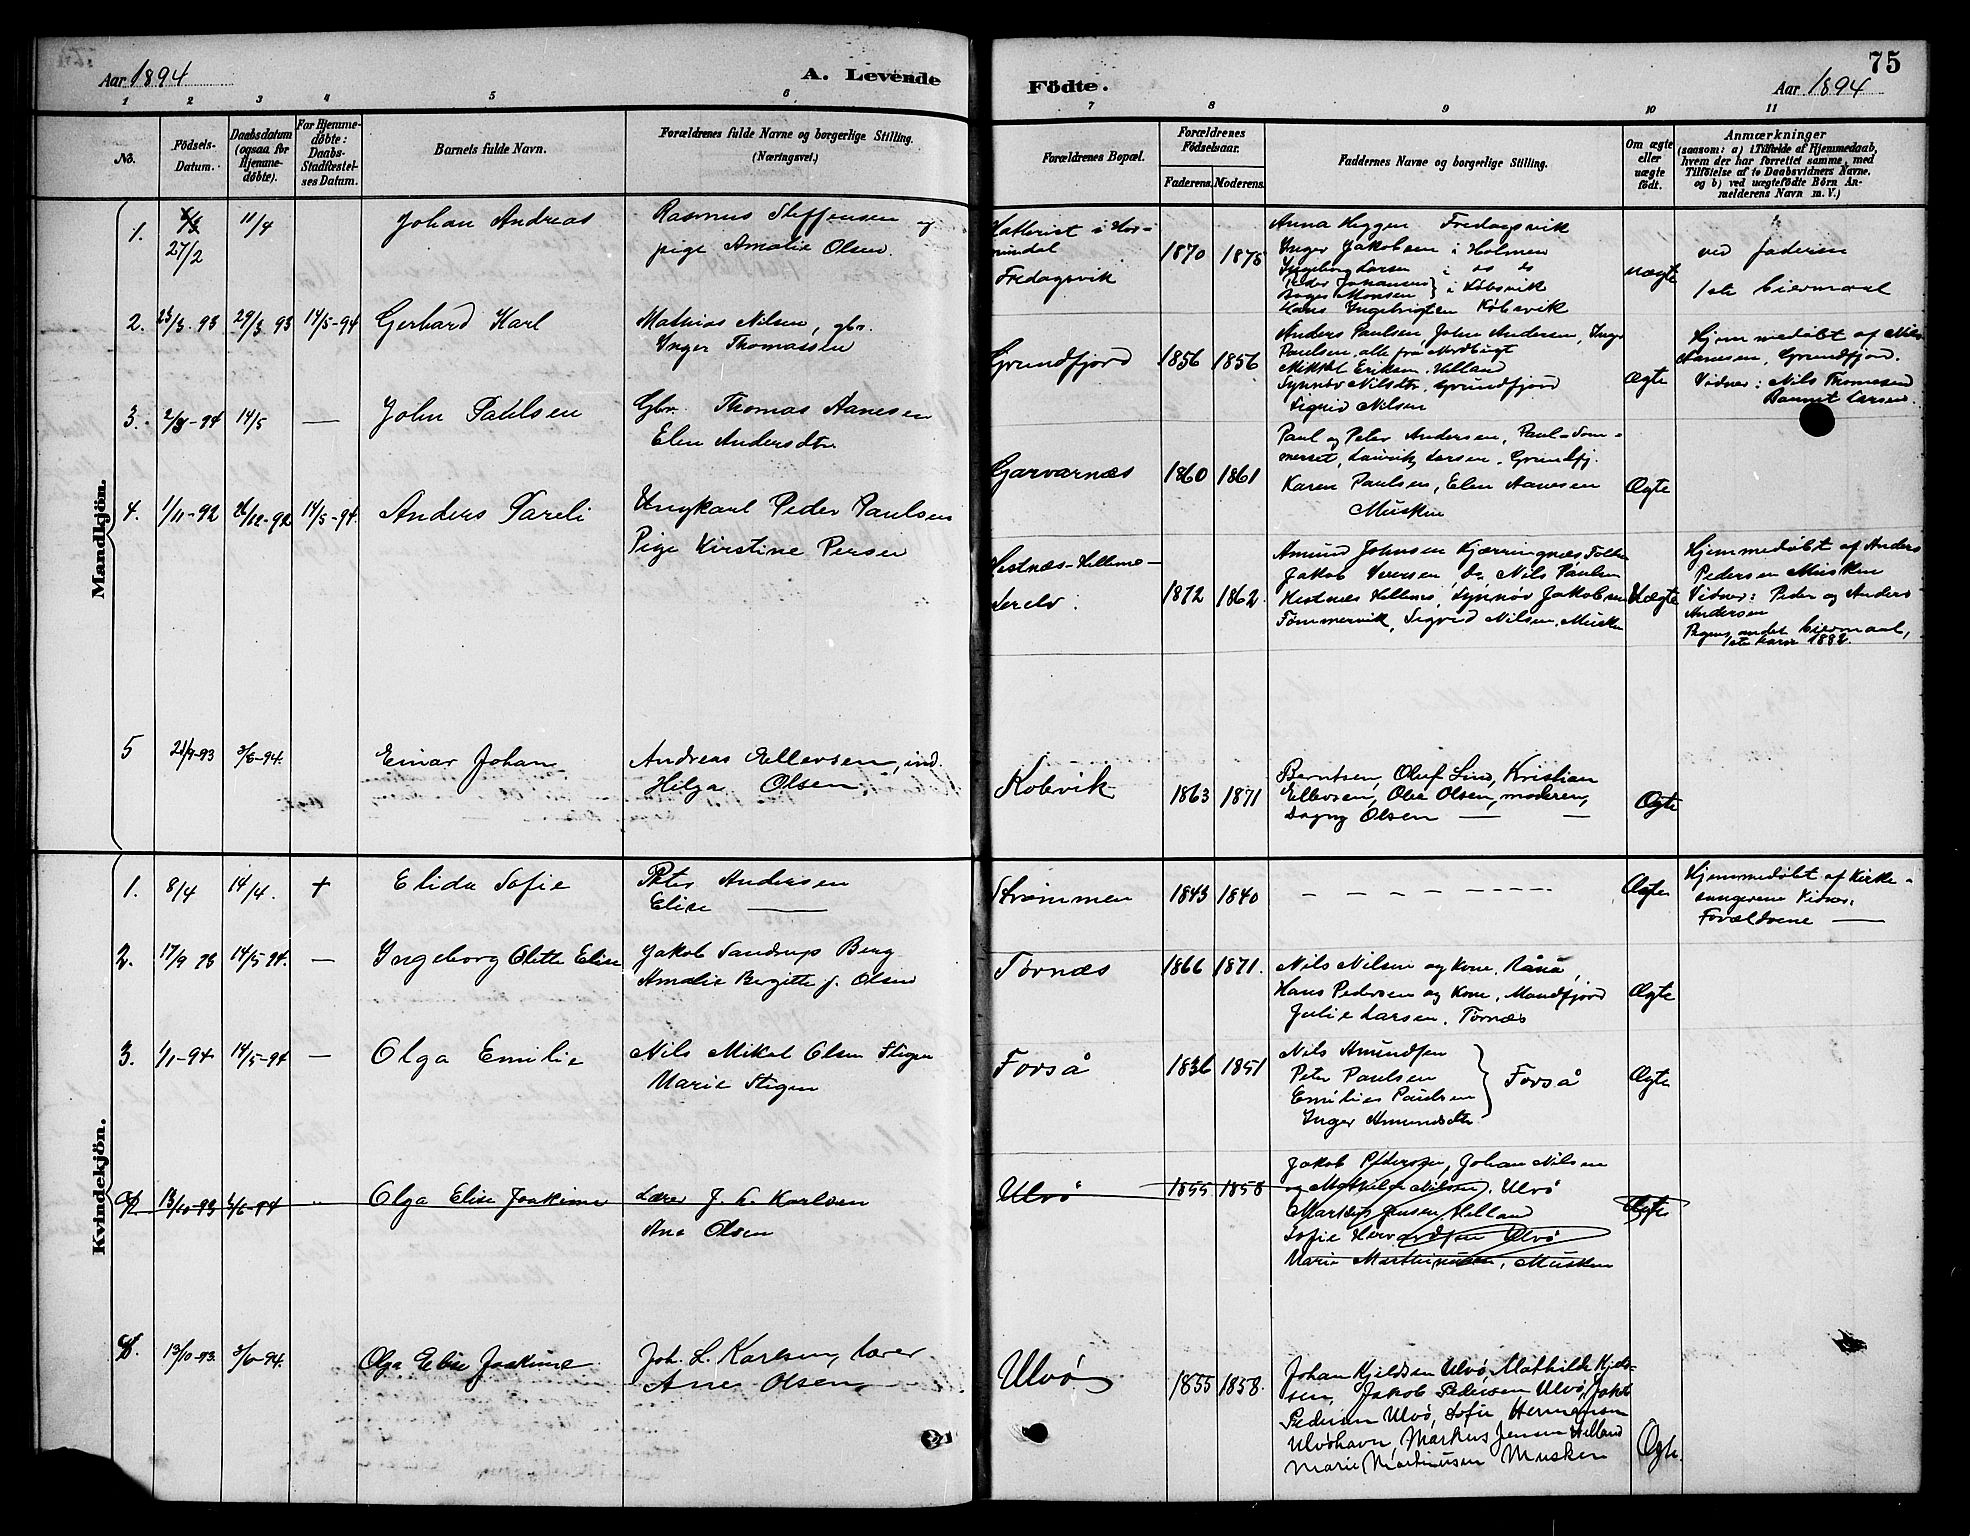 Aar 1894
A. Levende
Födte.
75
Aar 1894
1 2 3 4 5 6 7 8 9 10 11
No.
Födsels-
Datum.
Daabsdatum
(ogsaa for
Hjemme-
döbte).
For Hjemme-
döbte:
Daabs-
Stadfæstel-
ses Datum.
Barnets fulde Navn.
Forældrenes fulde Navne og borgerlige Stilling.
(Næringsvei.)
Forældrenes Bopæl.
Forældrenes
Födselsaar.
Faderens. Moderens.
Faddernes Navne og borgerlige Stilling.
Om ægte
eller
uægte
födt.
Anmærkninger
(saasom: a) i Tilfælde af Hjemmedaab,
hvem der har forrettet samme, med
Tilföielse af to Daabsvidners Navne,
og b) ved uægtefödte Börn An-
melderens Navn m. V.)
Mandkjön.
1.
27/2
11/4
Johan Andreas
Rasmus Steffensen og
pige Amalie Olsen.
Fredagsvik
1870 1875
Anna Heggen Fredagsvik
Inger Jakobsen i Holmen
Ingeborg Larsen i do do
Peder Johansen
Monsen } i Købsvik
Hans Ingebrigtsen Købsvik
uægte
ved faderen
1ste Leiermaal
2. 23/3 93 29/3 93 14/5-94
Gerhard Karl
Mathias Nilsen, gbr.
Inger Thomassen
Grundfjord
1856 1856
Anders Paulsen, John Andersen, Inga
Paulsen, alle fra Nordbugt
Mikkel Eriksen, Helland
Synnöv Nilsdtr, Grundfjord
Sigrid Nilsen
Ægte
Hjemmedöbt af Nils
Aanesen, Grundfjord.
Vidner: Nils Thomesen
Larsen
3. 14/5 —
John Paulsen
Gbr. Thomas Aanesen
Elen Andersdtr.
Garvarnæs
1860 1861
Paul og Peter Andersen, Paul Som-
merset, Lauritz Larsen, Grundfj.
Karen Paulsen, Elen Aanesen
Musken
Ægte
4. 1/11-92 14/5-94
Anders Pareli
Ungkarl Peder Paulsen
Pige Kirstine Persen
Hestnæs-Helleme-
1872 1862.
Amund Johnsen Kjærringnæs
Jakob do, Nils Paulsen
Hestnæs Hellemo, Synnöv Jakobsen
Tömmervik, Sigrid Nilsen, Musken
Uægte
Hjemmedöbt af Anders
Pedersen Musken
Vidner: Peder og Anders
Andersen
Pigens andet Leiermaal,
1ste 1882.
5 21/9-93 3/6-94.
Einar Johan
Andreas Ellevsen, ind.
Helga Olsen,
Kobvik
1863 1871
Berntsen, Oluf Lind, Kristian
Ellevsen, Ole Olsen, moderen,
Dagny Olsen — —
Ægte
Kvindekjön.
1. 8/4 14/4. +
Elida Sofie
Peter Andersen
Elise —
Strømmen
1843 1840
— — — — — —
Ægte
Hjemmedöbt af Kirke-
sangeren Vidner:
Forældrene —
2. 17/9 93 14/5-94. —
Ingeborg Olette Elise
Jakob Sandrup Berg
Amalie Bergitte f. Olsen
Tørnæs
1866 1871.
Nils Nilsen og Kone, Rånå,
Hans Pedersen og Kone, Mandfjord
Julie Larsen, Tørnæs
Ægte
3. 1/1-94 14/5-94 —
Olga Emilie
Nils Mikal Olsen Stigen
Marie Stigen
Forså
1836 1851
Nils Amundsen
Peter Paulsen
Emilies Paulsen
Inger Amundsdtr
} Forså
Ægte
4. 13/10-93 3/6-94 "
Olga Elise Joakime
Lærer J. L. Karlsen
Ane Olsen
Ulvö
1855 1858
Jakob Pedersen, Johan Nilsen
og Mathilde Nilsen, Ulvö
Markus Jensen Helland
Sofie Ulvö
Marie Marthinusen, Musken
Ægte
13/10-93. 3/6-94.
Olga Elise Joakime
Joh. L. Karlsen, lærer
Ane Olsen
Ulvö
1855 1858.
Johan Kjeldsen Ulvö, Mathilde Kjeld-
sen, Jakob Pedersen Ulvö,
Pedersen Ulvö, Sofie Hermansen
Ulvöhavn, Markus Jensen Helland
Marie Martinusen Musken
Ægte.